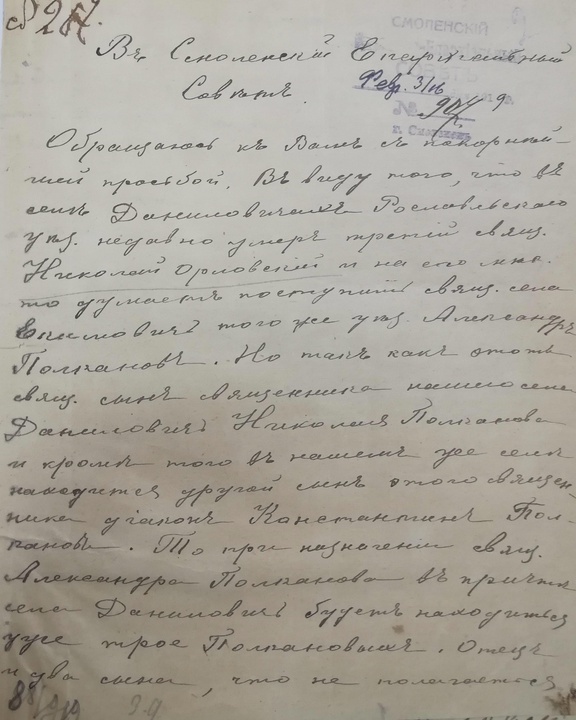 № 287.
СМОЛЕНСКІЙ
Въ Смоленскій Епархіальный
Совѣтъ.
Февр. 3/16
№ 904 9
г. Смоленскъ
Обращаюсь къ Вамъ съ покорнѣй-
шей просьбой. Въ виду того, что въ
селѣ Даниловичахъ Рославльскаго
уѣз. недавно умеръ третій свящ.
Николай Орловскій и на его мѣс-
то думаетъ поступить свящ. села
Екимовичъ того же уѣз. Александръ
Полкановъ. Но такъ какъ этотъ
свящ. сынъ священника нашего села
Даниловичъ Николая Полканова
и кромѣ того въ нашемъ же селѣ
находится другой сынъ этого священ-
ника діаконъ Константинъ Пол-
кановъ. То при назначеніи свящ.
Александра Полканова въ причтѣ
села Даниловичъ будетъ находиться
уже трое Полкановыхъ. Отецъ
и два сына, что не полагается